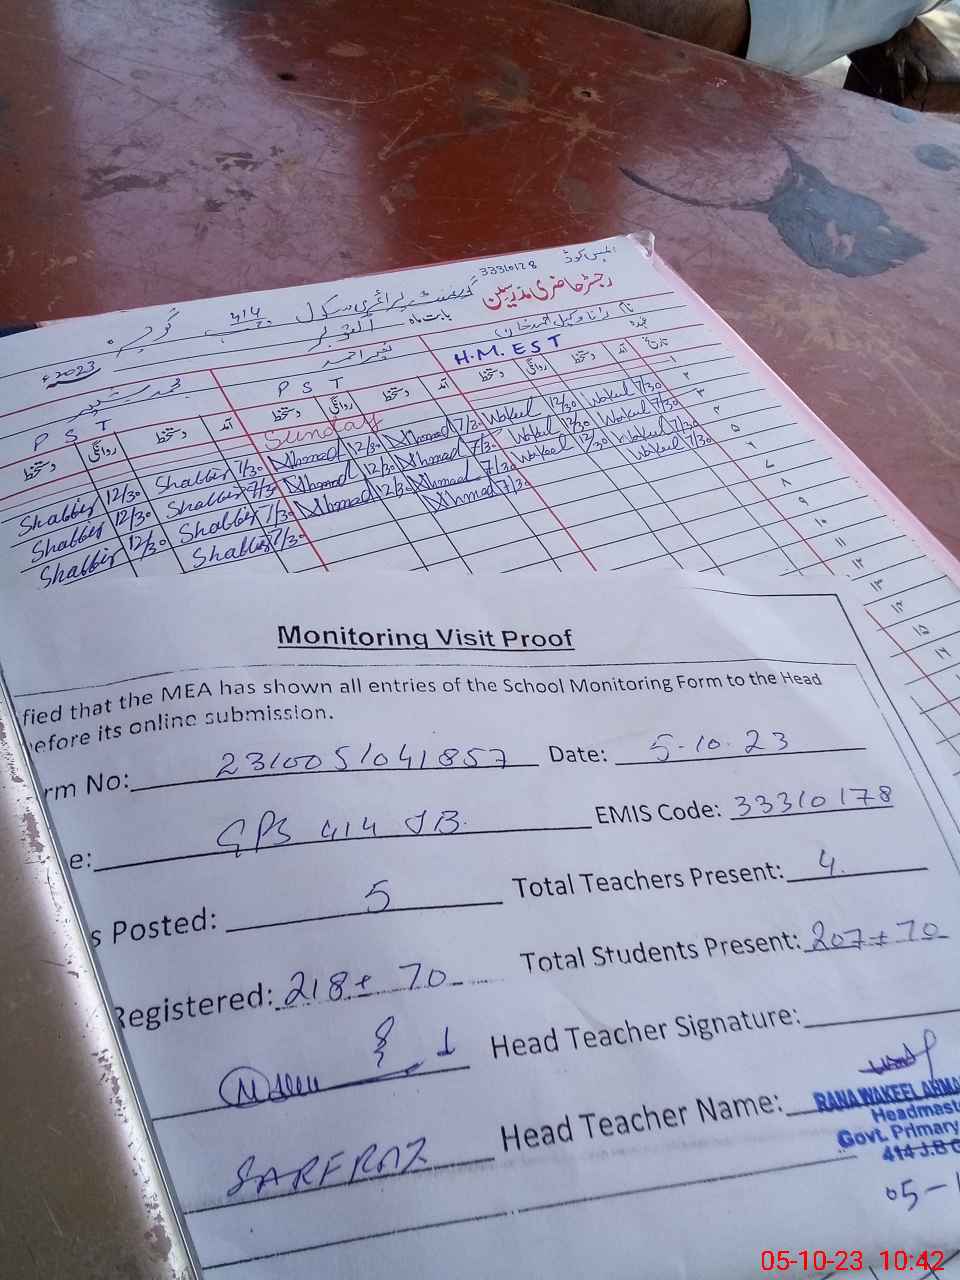 33310178
رجسٹر حاضری مدرسین
گورنمنٹ پرائمری سکول 414
بابت ماہ اکتوبر
2023ء
نام رانا وکیل احمد خان
عہدہ H.M. EST
P S T
محمد شبیر P S T
تاریخ آمد دستخط روانگی دستخط آمد دستخط روانگی دستخط آمد دستخط روانگی دستخط
Sunday
Shabbir 12/30 Shabbir 7/30 Ahmad 12/30 Ahmad 7/30 Wakeel 12/30 Wakeel 7/30
Shabbir 12/30 Shabbir 7/30 Ahmad 12/30 Ahmad 7/30 Wakeel 12/30 Wakeel 7/30
Shabbir 12/30 Shabbir 7/30 Ahmad 12/30 Ahmad 7/30 Wakeel 12/30 Wakeel 7/30
Shabbir 7/30 Ahmad 7/30 Wakeel 7/30
Monitoring Visit Proof
fied that the MEA has shown all entries of the School Monitoring Form to the Head
before its online submission.
rm No: 2310051041857 Date: 5-10-23
e: GPS 414 JB EMIS Code: 33310178
s Posted: 5 Total Teachers Present: 4
Registered: 218+70 Total Students Present: 207+70
Head Teacher Signature:
SARFRAZ Head Teacher Name: RANA WAKEEL AHMA
Headmast
Govt. Primary
414 J.B G
05-1
05-10-23 10:42